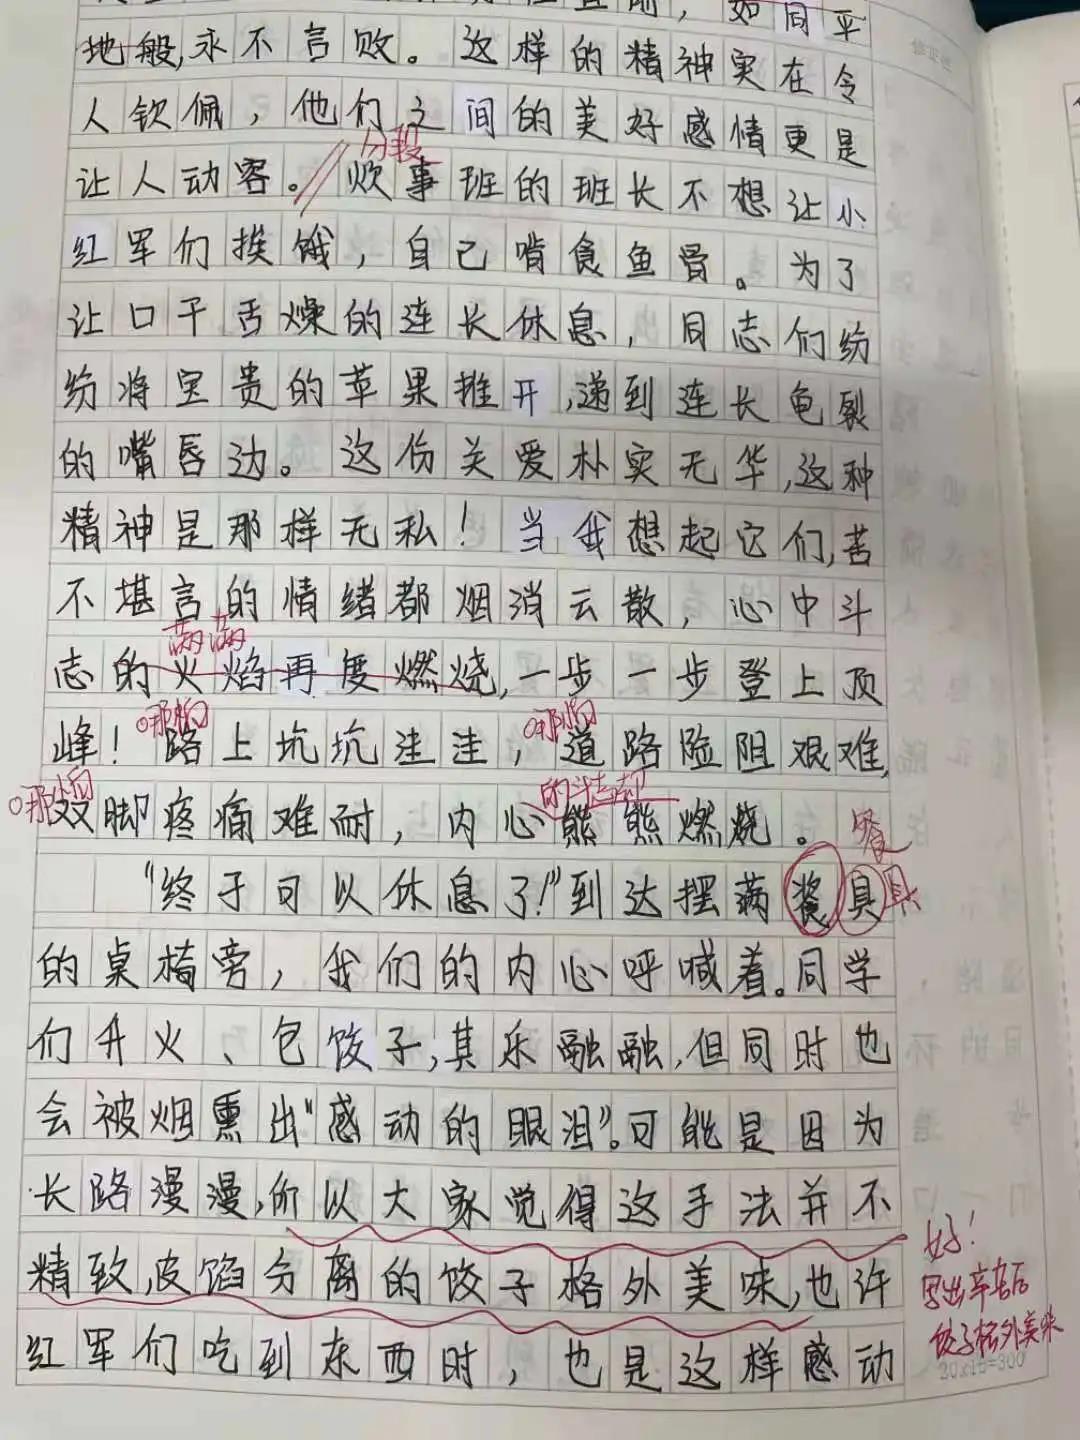 如同平
地般,永不言败。这样的精神实在令
人钦佩，他们之间的美好感情更是
分段
让人动容。炊事班的班长不想让小
红军们挨饿，自己啃食鱼骨。为了
让口干舌燥的连长休息，同志们纷
纷将宝贵的苹果推开,递到连长龟裂
的嘴唇边。这份关爱朴实无华,这种
精神是那样无私！当我想起它们,苦
不堪言的情绪都烟消云散，心中斗
满满
志的火焰再度燃烧,一步一步登上顶
哪怕 哪怕
峰！路上坑坑洼洼，道路险阻艰难,
哪怕 的斗志却
双脚疼痛难耐，内心熊熊燃烧。
餐
“终于可以休息了!”到达摆满餐具 具
的桌椅旁，我们的内心呼喊着。同学
们升火、包饺子,其乐融融,但同时也
会被烟熏出“感动的眼泪”。可能是因为
长路漫漫,所以大家觉得这手法并不
精致,皮馅分离的饺子格外美味,也许
红军们吃到东西时，也是这样感动
好！
写出辛苦后
饺子格外美味
20x15=300